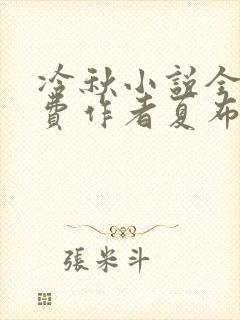 冷秋小説全
費作者夏布
張米斗